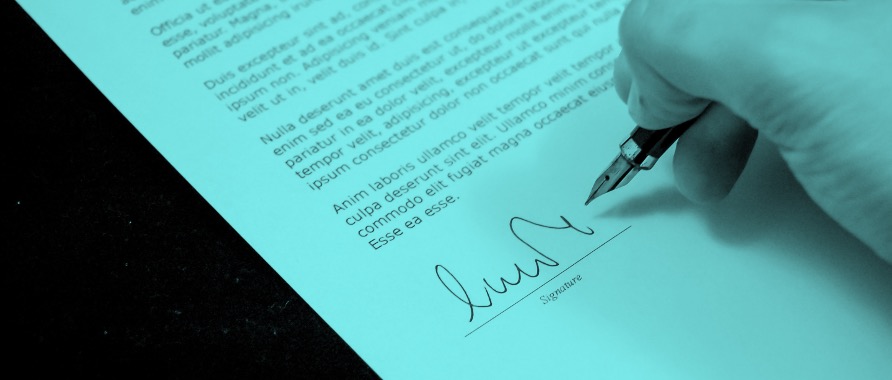 enim
Officia ut e
esse, voluptat
pariatur. Magna,
mollit adipisicing
Duis excepteur sint ad, con
incididunt et ad ea occaecat c
ipsum non. Adipisicing veniam
velit ut in, velit duis id. Sint culpa
Nulla deserunt amet duis est consequat
enim sed ea eu consectetur ut, do dolore
pariatur in ea dolor velit, excepteur mollit enim,
tempor velit, adipisicing, excepteur ut excepteur
ipsum consectetur dolor non occaecat sunt qui nulla
Anim laboris ullamco velit tempor velit tempor
culpa deserunt sint elit. Ullamco minim con
commodo elit fugiat magna occaecat eiu
Esse ea esse.
Signature